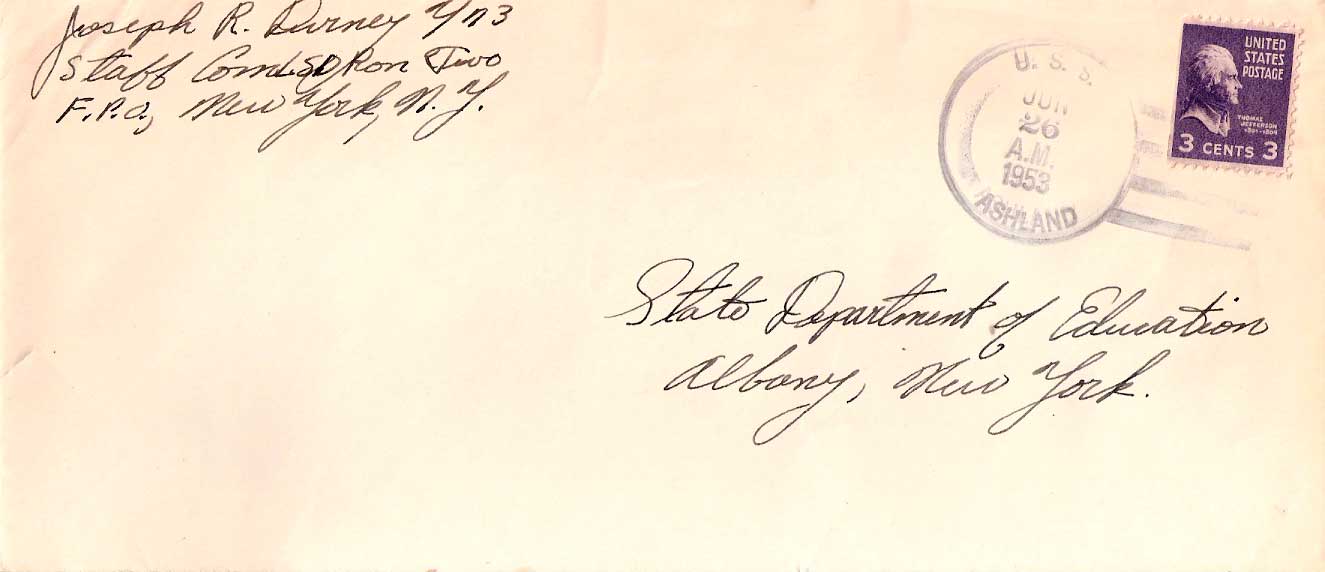 Joseph R. Durney YN3
Staff ComLSDRon Two
F.P.O., New York, N.Y.
U. S. S.
JUN
26
A.M.
1953
ASHLAND
UNITED
STATES
POSTAGE
THOMAS
JEFFERSON
1801-1809
3 CENTS 3
State Department of Education
Albany, New York.